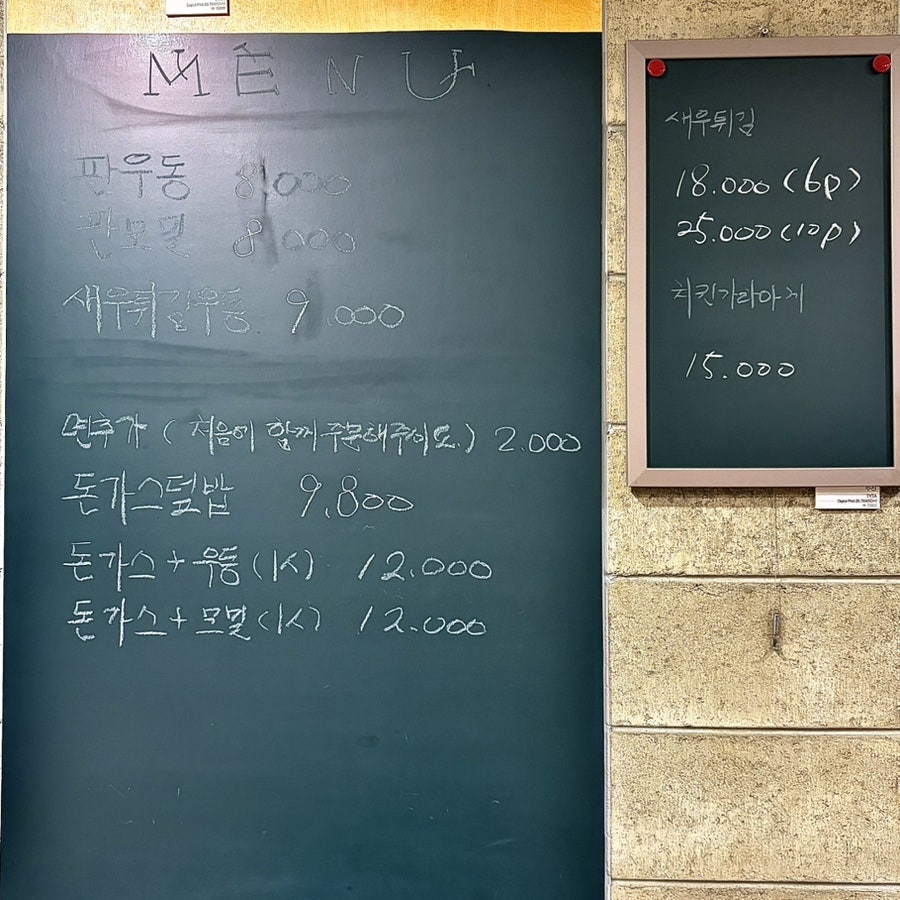 MENU
판우동 8,000
판모밀 8,000
새우튀김우동 9,000
면추가 (처음에 함께 주문해주세요.) 2.000
돈가스덮밥 9,800
돈가스 + 우동 (1人) 12.000
돈가스 + 모밀 (1人) 12.000
새우튀김
18.000 (6p)
25.000 (10p)
치킨가라아게
15.000